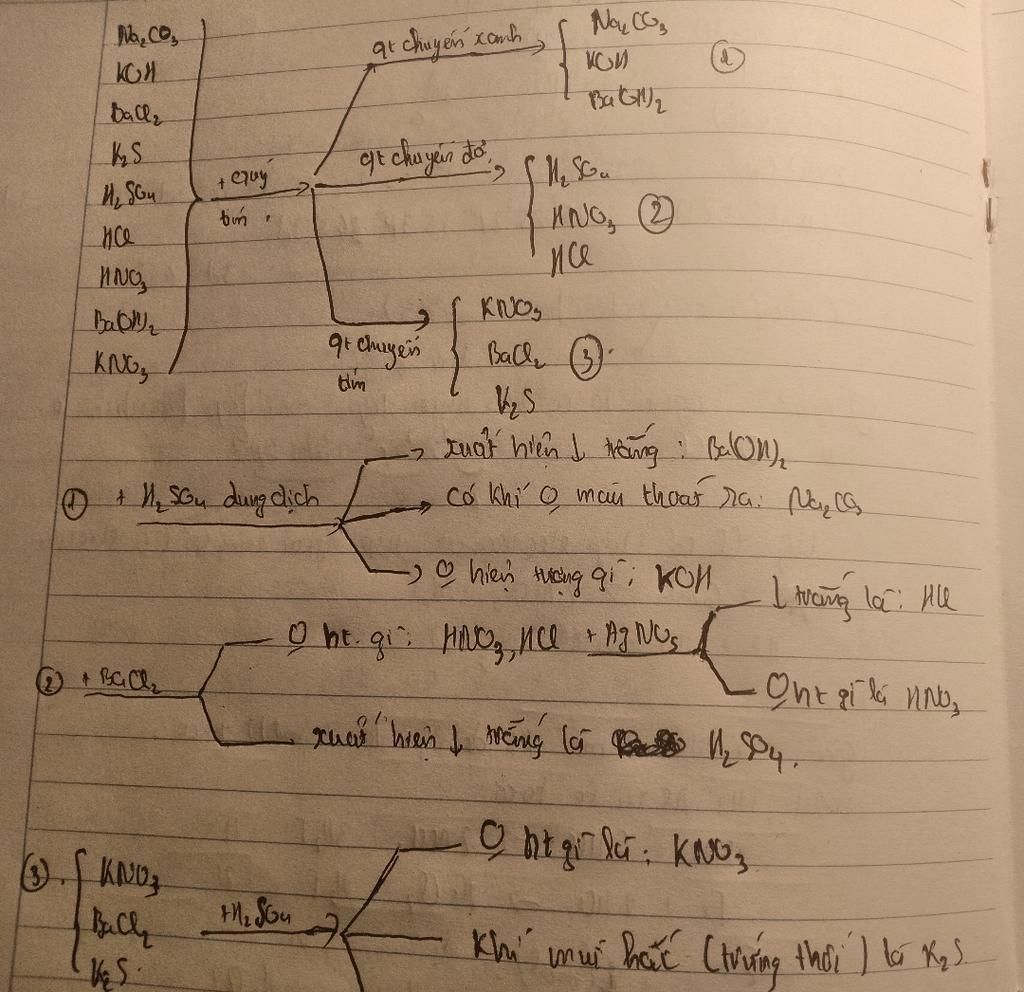 Na₂CO₃
KOH
BaCl₂
K₂S
H₂SO₄
HCl
HNO₃
Ba(OH)₂
KNO₃
+ quỳ tím
qt chuyển xanh
Na₂CO₃
KOH ①
Ba(OH)₂
qt chuyển đỏ
H₂SO₄
HNO₃ ②
HCl
qt chuyển tím
KNO₃
BaCl₂ ③
K₂S
① + H₂SO₄ dung dịch
xuất hiện ↓ trắng : Ba(OH)₂
có khí O màu thoát ra: Na₂CO₃
O hiện tượng gì: KOH
② + BaCl₂
O ht gì: HNO₃, HCl + AgNO₃
↓ trắng là: HCl
O ht gì là HNO₃
xuất hiện ↓ trắng là H₂SO₄.
③. KNO₃
BaCl₂
K₂S.
+H₂SO₄
O ht gì là: KNO₃
Khí mùi hắc (trứng thối) là K₂S